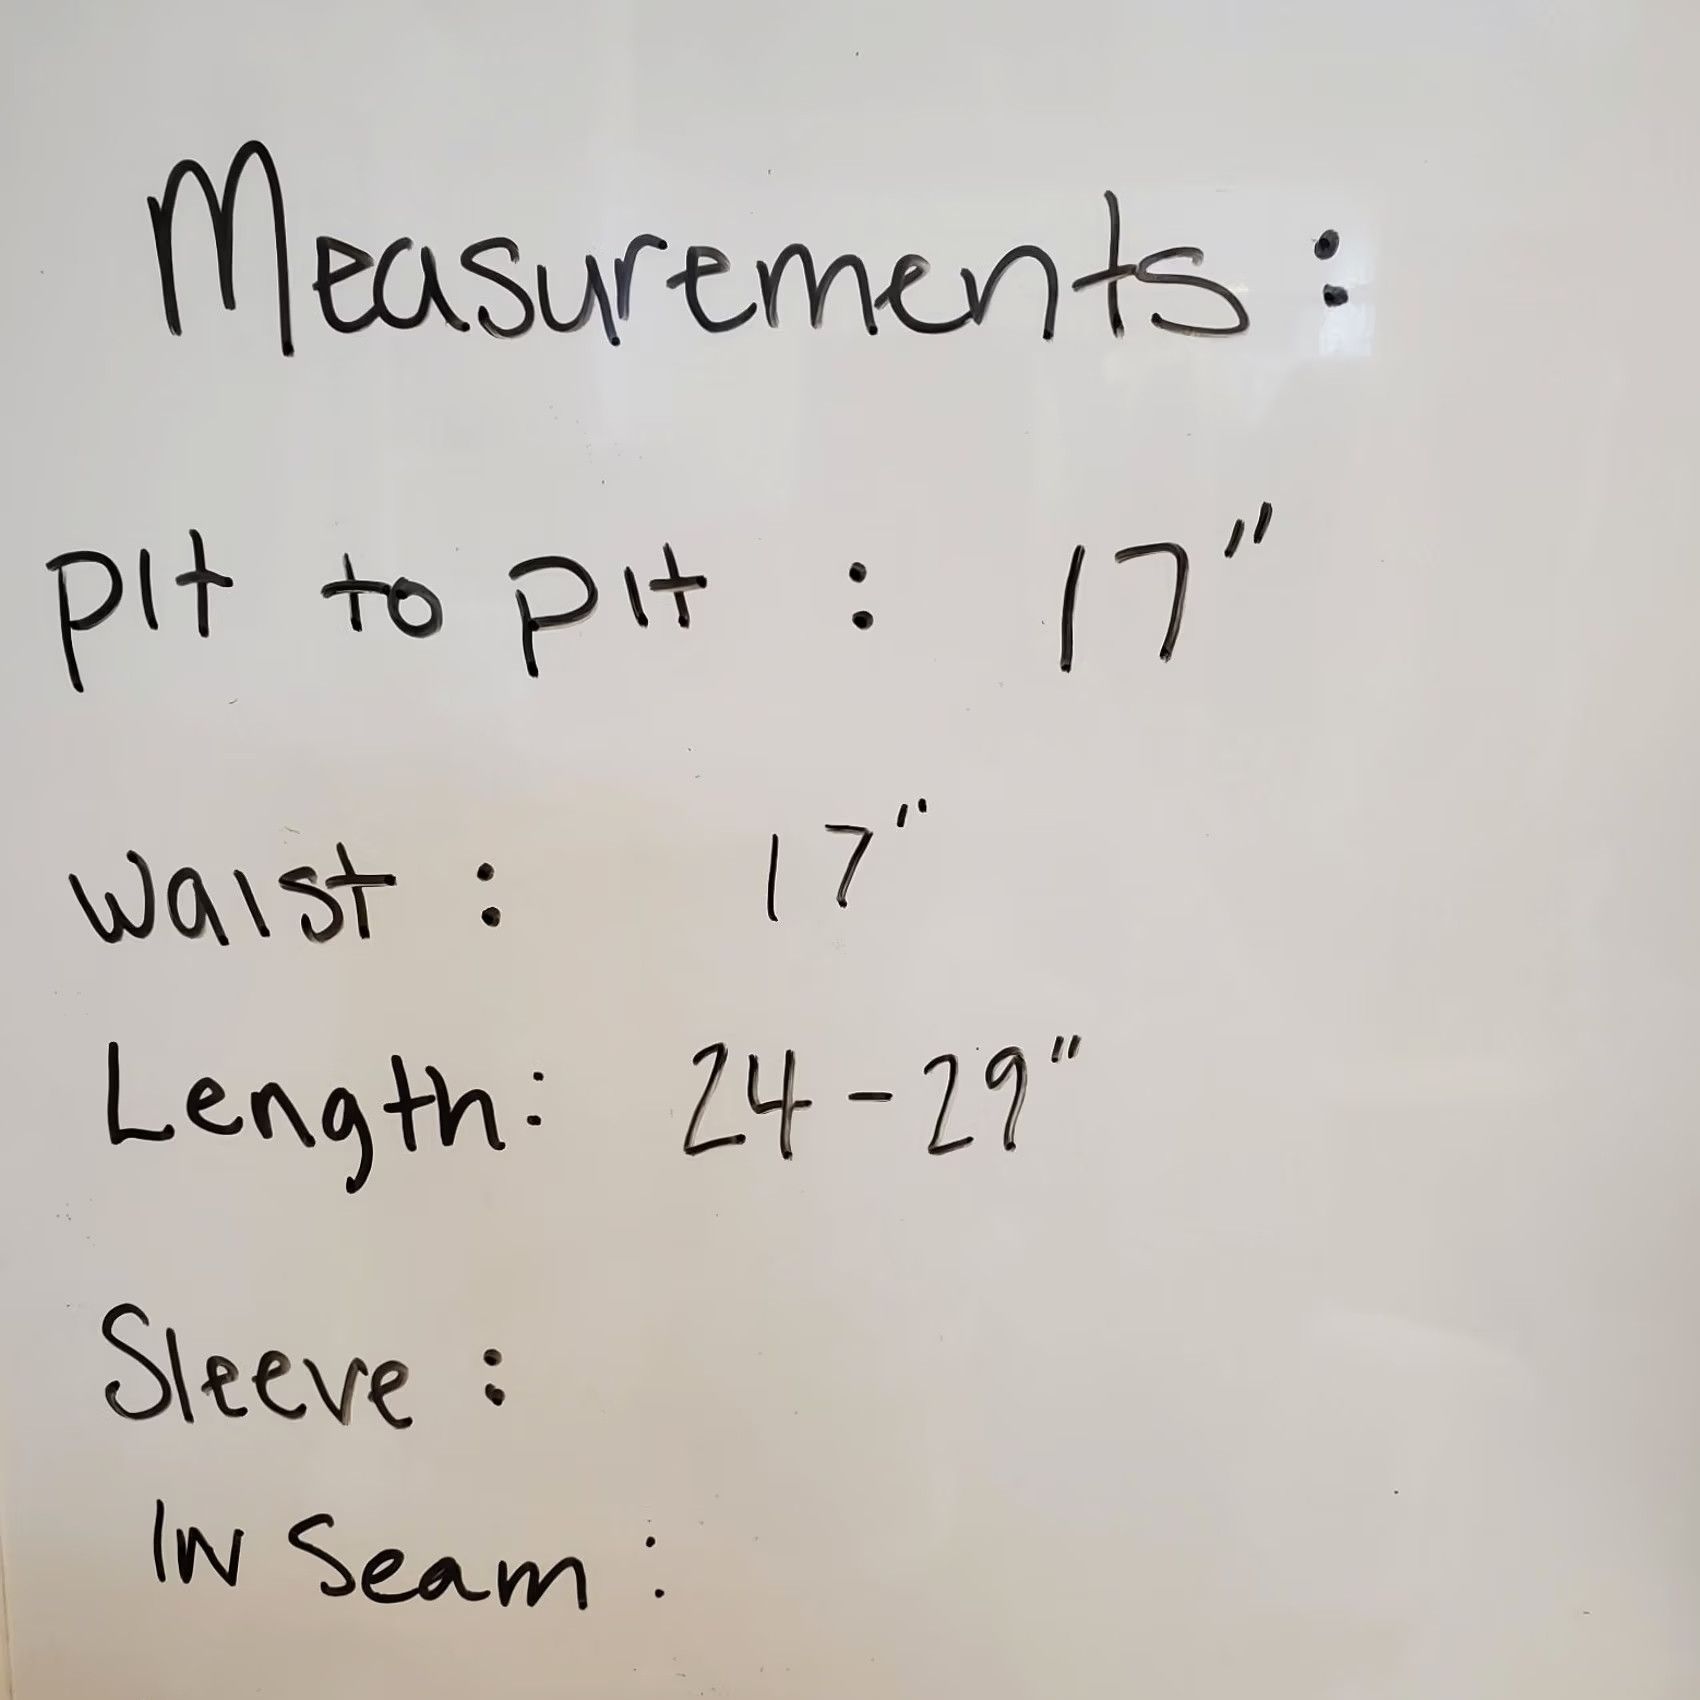 Measurements:
Pit to pit : 17"
Waist : 17"
Length: 24-29"
Sleeve :
IN Seam :